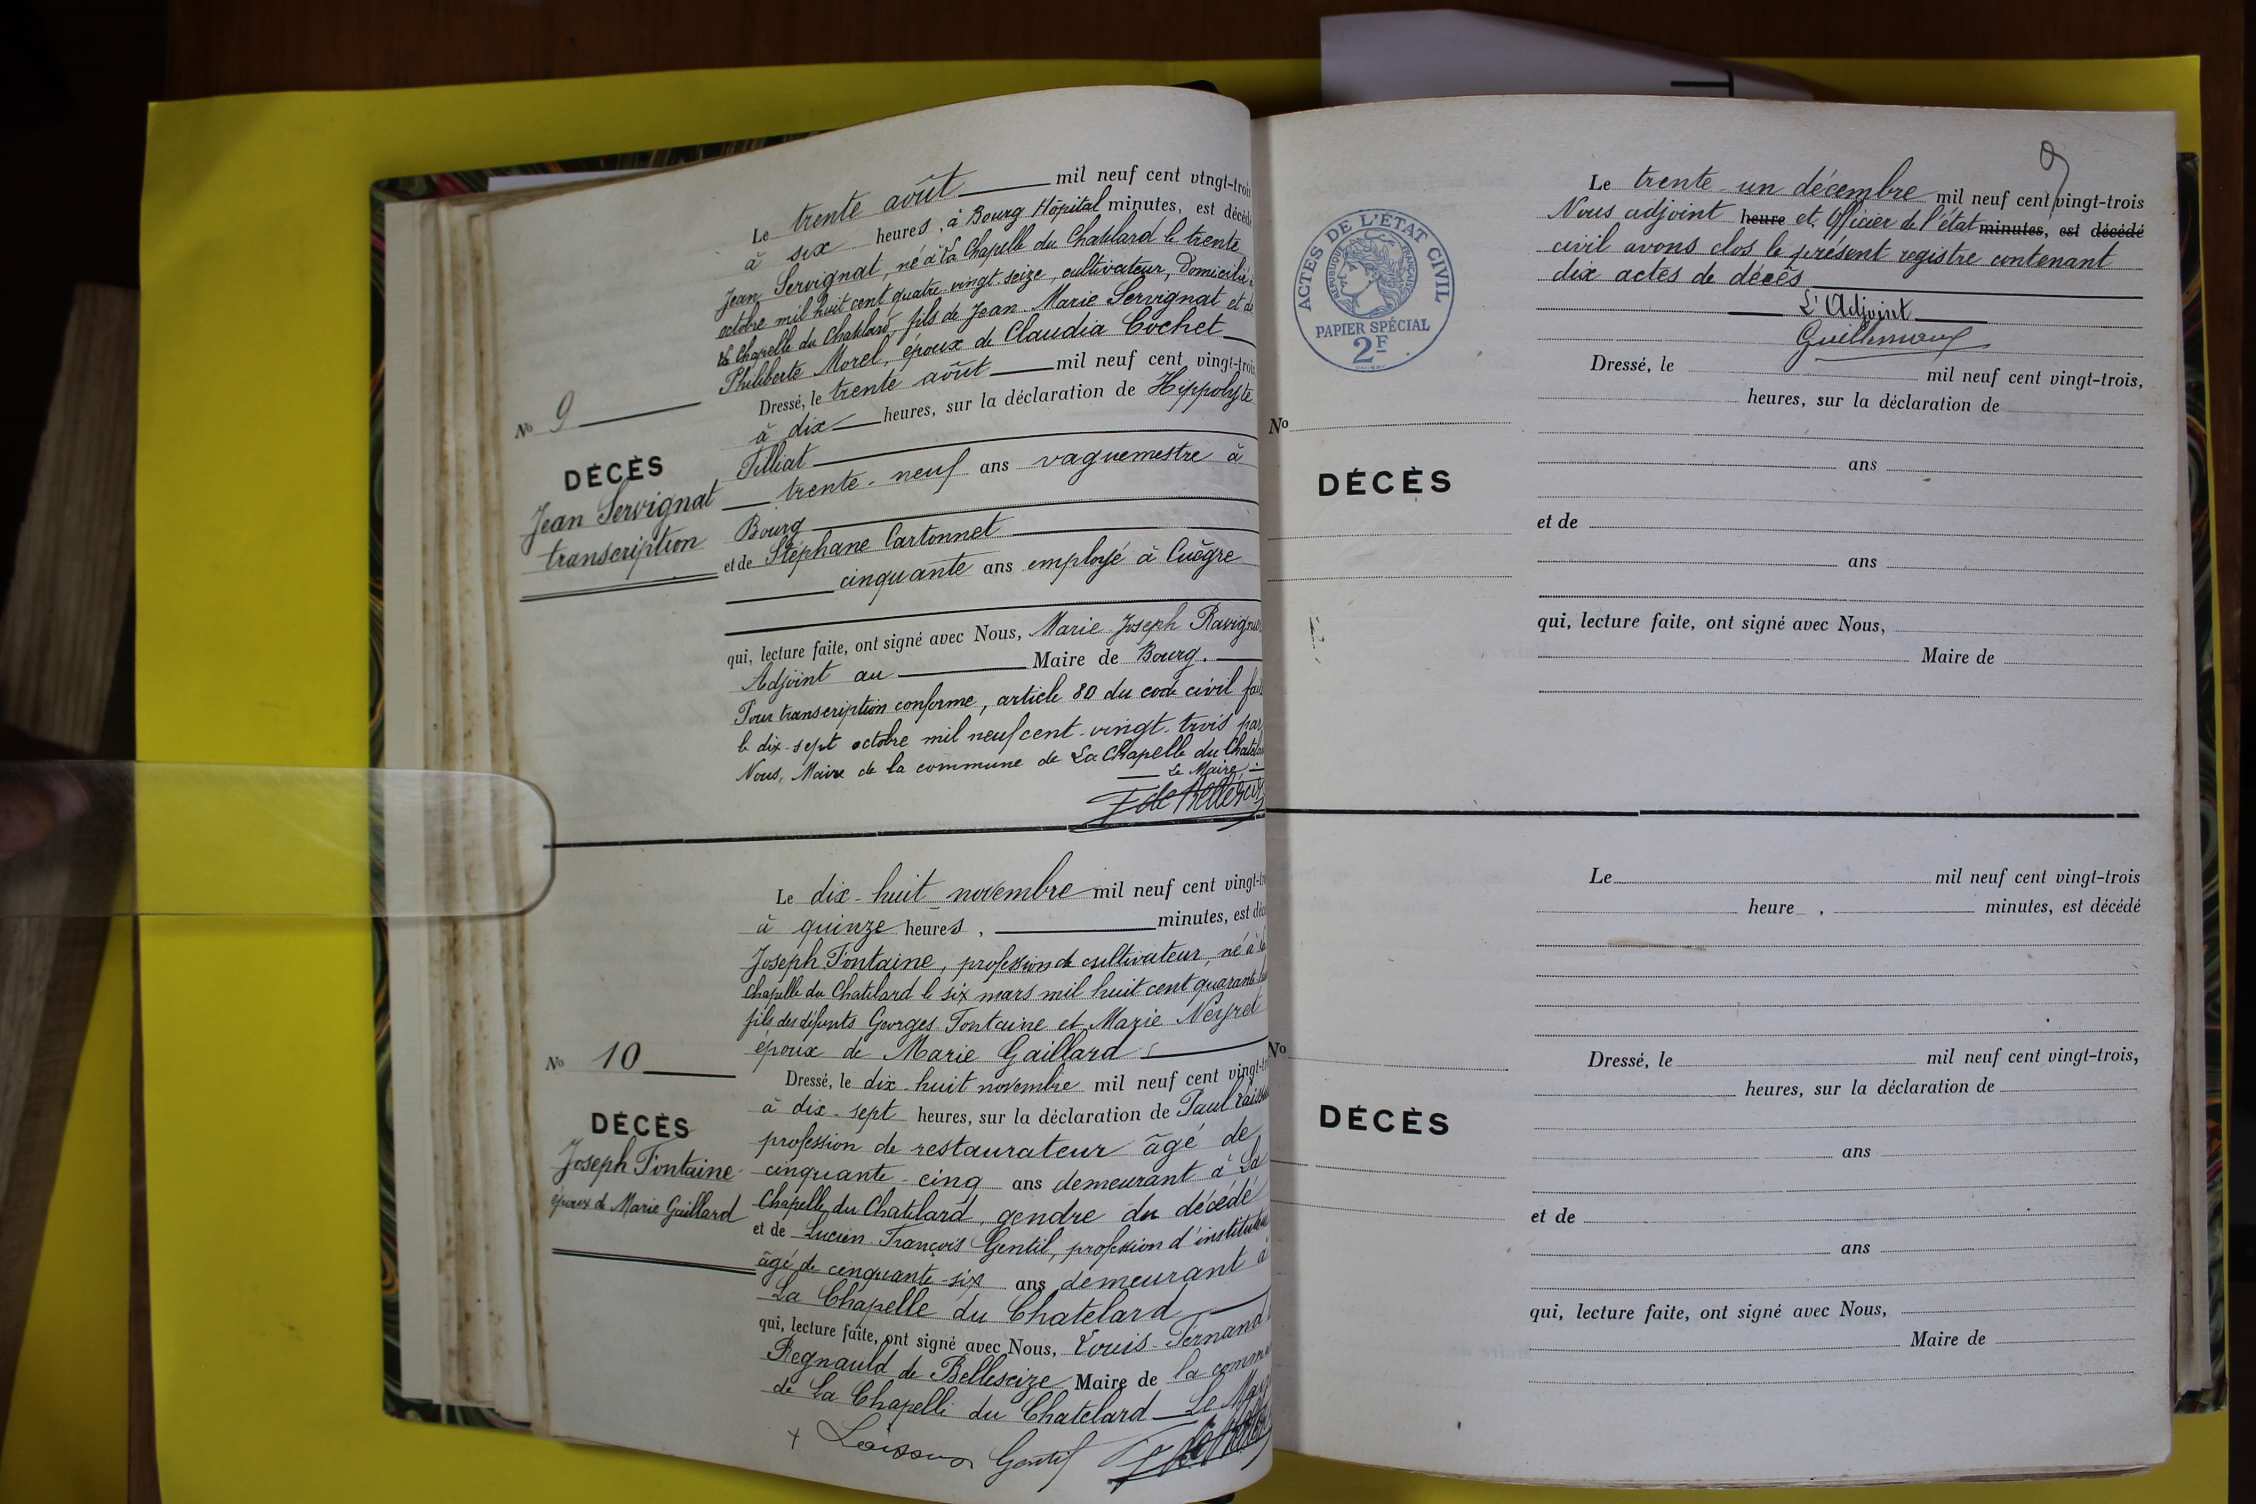 Le trente août mil neuf cent vingt-trois
à six heures, à Bourg Hôpital minutes, est décédé
Jean Servignat, né à La Chapelle du Chatelard le trente
octobre mil huit cent quatre-vingt-seize, cultivateur, Domicilié à
La Chapelle du Chatelard, fils de Jean-Marie Servignat et de
Philiberte Morel, époux de Claudia Cochet
Dressé, le trente août mil neuf cent vingt-trois
à dix heures, sur la déclaration de Hippolyte
Tilliat
trente-neuf ans vaguemestre à
Bourg
et de Stéphane Cartonnet
cinquante ans employé à Cuègre
qui, lecture faite, ont signé avec Nous, Marie Joseph
Adjoint au Maire de Bourg.
Pour transcription conforme, article 80 du code civil
le dix-sept octobre mil neuf cent-vingt-trois par
Nous, Maire de la commune de La Chapelle du
Le Maire
No 9
DÉCÈS
Jean Servignat
transcription
Le dix-huit novembre mil neuf cent
à quinze heures, minutes, est
Joseph Fontaine, profession de cultivateur, né à
Chapelle du Chatelard le six mars mil huit cent
fils des défunts Georges Fontaine et Marie Neyret
époux de Marie Gaillard
Dressé, le dix-huit novembre mil neuf cent
à dix-sept heures, sur la déclaration de Paul
profession de restaurateur âgé de
cinquante-cinq ans demeurant à La
Chapelle du Chatelard, gendre du décédé
et de Lucien-François Gentil, profession d'instituteur
âgé de cinquante-six ans demeurant à
La Chapelle du Chatelard
qui, lecture faite, ont signé avec Nous, Louis-Fernand
Regnauld de Bellescize Maire de la
de La Chapelle du Chatelard Le
Gentil
No 10
DÉCÈS
Joseph Fontaine
époux de Marie Gaillard
9
ACTES DE L'ÉTAT CIVIL
RÉPUBLIQUE FRANÇAISE
PAPIER SPÉCIAL
2F
Le trente-un décembre mil neuf cent vingt-trois
Nous adjoint heure et Officier de l'état minutes, est décédé
civil avons clos le présent registre contenant
dix actes de décès
L'Adjoint
Dressé, le mil neuf cent vingt-trois,
heures, sur la déclaration de
ans
et de
ans
qui, lecture faite, ont signé avec Nous,
Maire de
No
DÉCÈS
Le mil neuf cent vingt-trois
heure , minutes, est décédé
Dressé, le mil neuf cent vingt-trois,
heures, sur la déclaration de
ans
et de
ans
qui, lecture faite, ont signé avec Nous,
Maire de
No
DÉCÈS